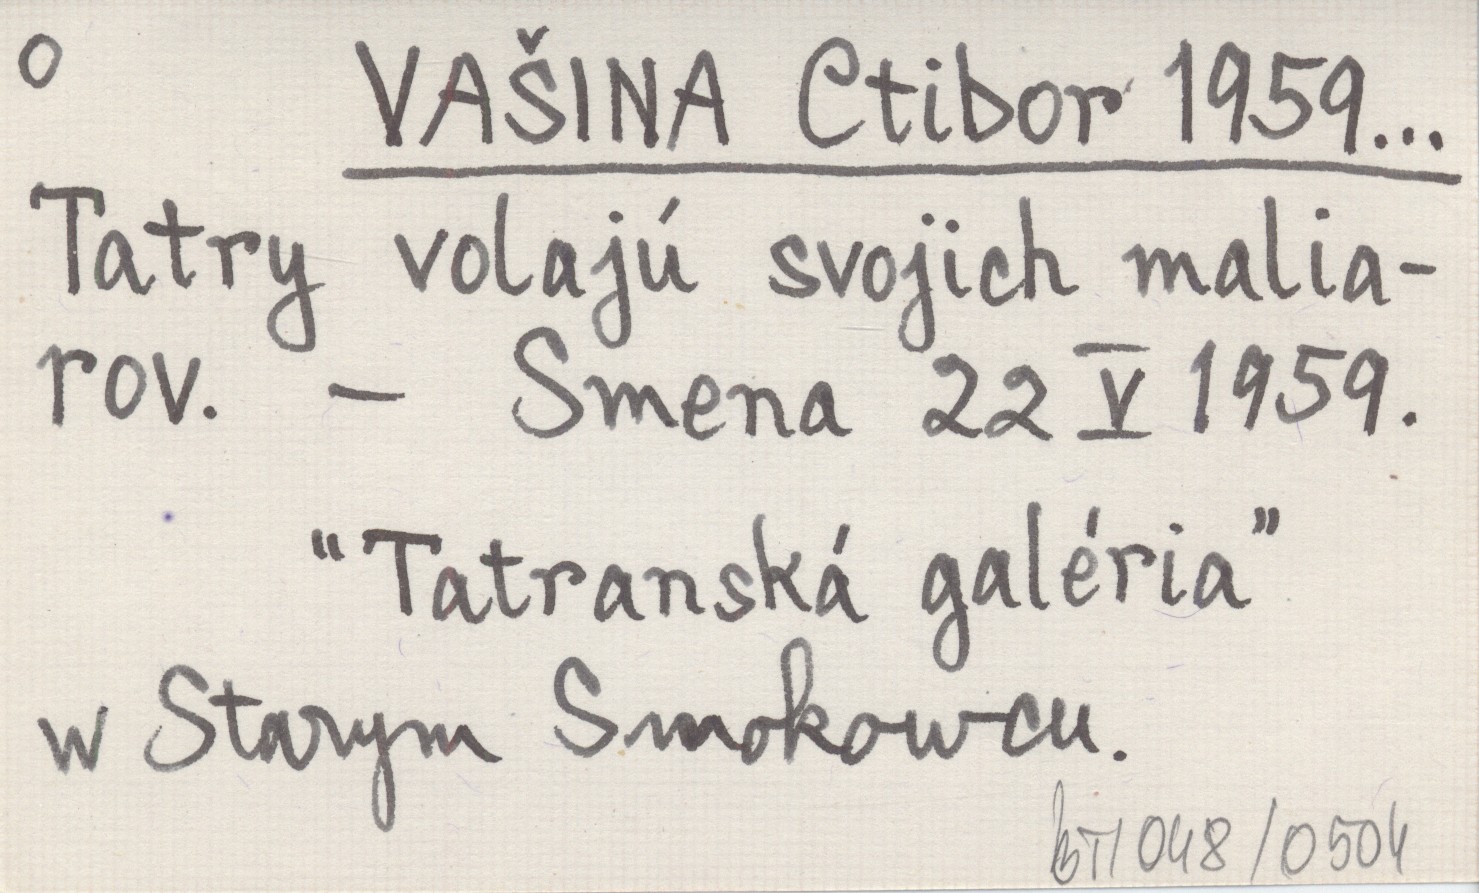 o VAŠINA Ctibor 1959...
Tatry volajú svojich malia-
rov. – Smena 22 V 1959.
"Tatranská galéria"
w Starym Smokowcu.
048/0504